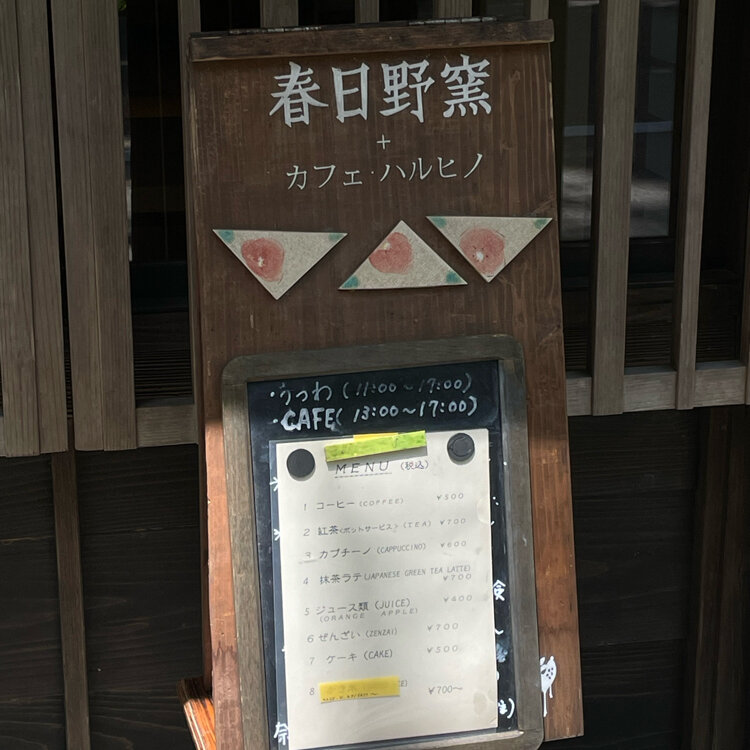 春日野窯
+
カフェ・ハルヒノ
・うつわ (11:00～17:00)
・CAFE (13:00～17:00)
MENU (税込)
1 コーヒー (COFFEE) ¥500
2 紅茶<ポットサービス> (TEA) ¥700
3 カプチーノ (CAPPUCCINO) ¥600
4 抹茶ラテ (JAPANESE GREEN TEA LATTE) ¥700
5 ジュース類 (JUICE) ¥400
(ORANGE APPLE)
6 ぜんざい (ZENZAI) ¥700
7 ケーキ (CAKE) ¥500
8 ¥700～
験
奈